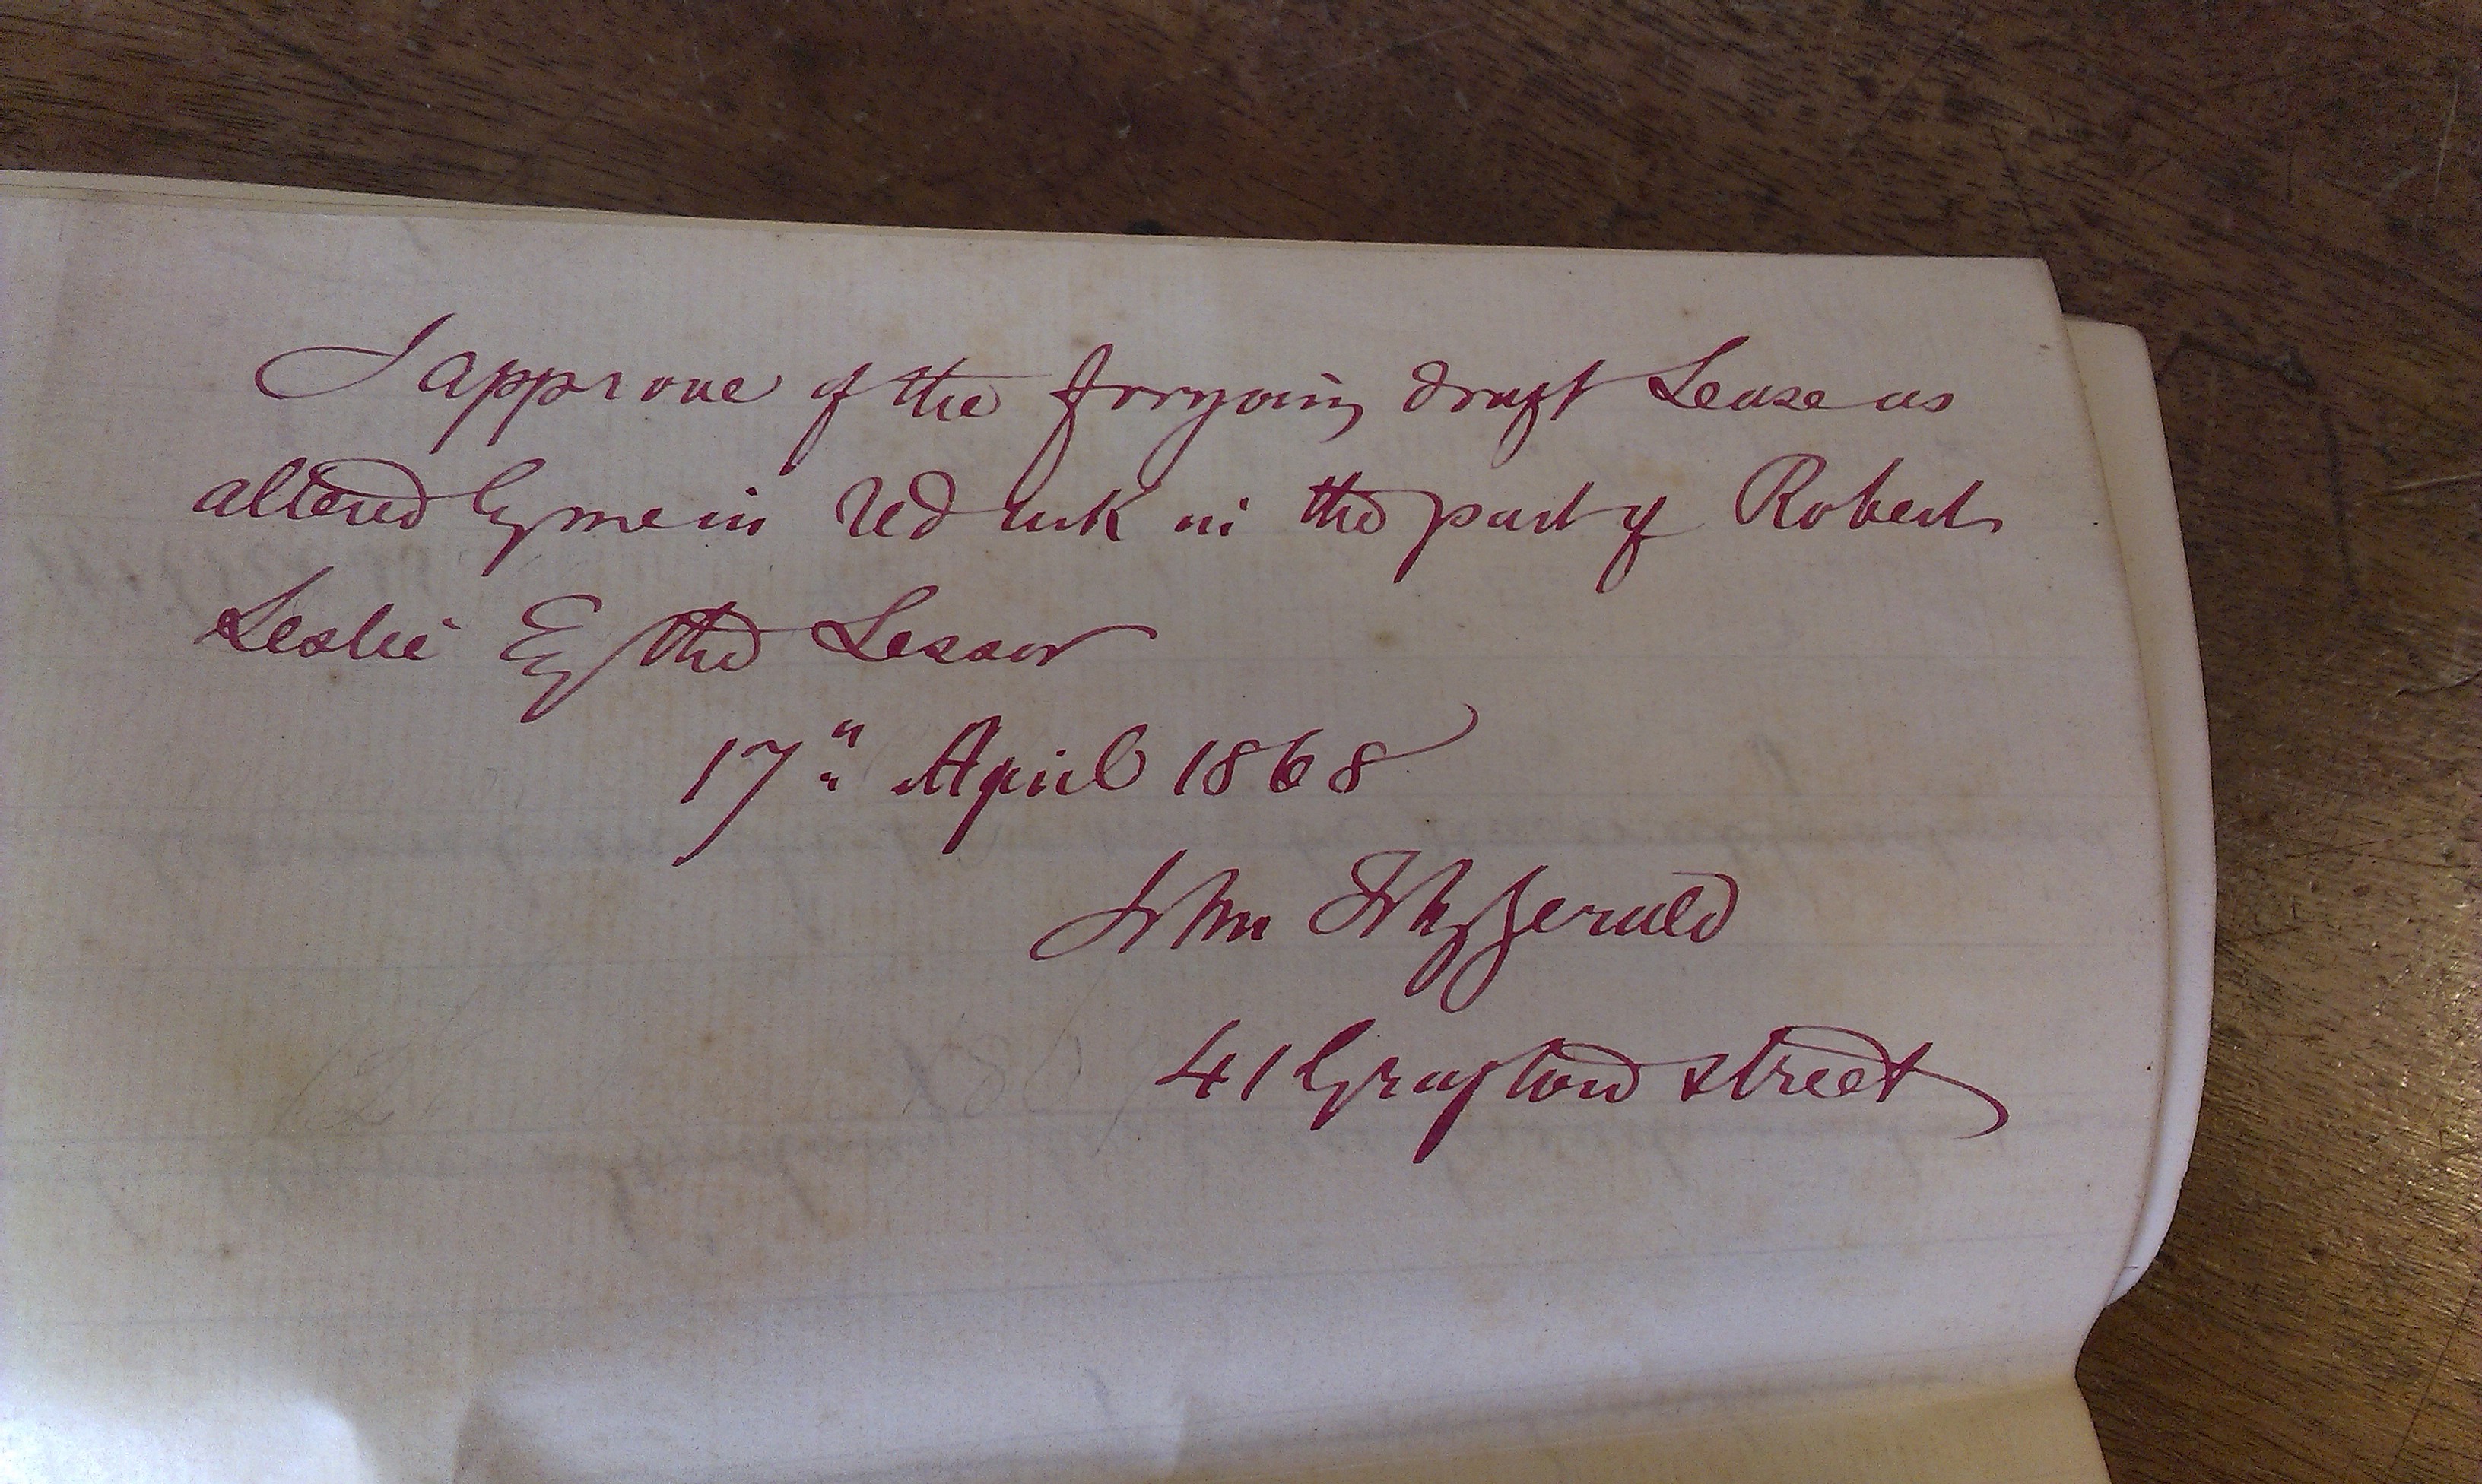 I approve of the foregoing draft Lease as
altered by me in red ink on the part of Robert
Leslie Esq the Lessor
17" April 1868
John FitzGerald
41 Grafton street